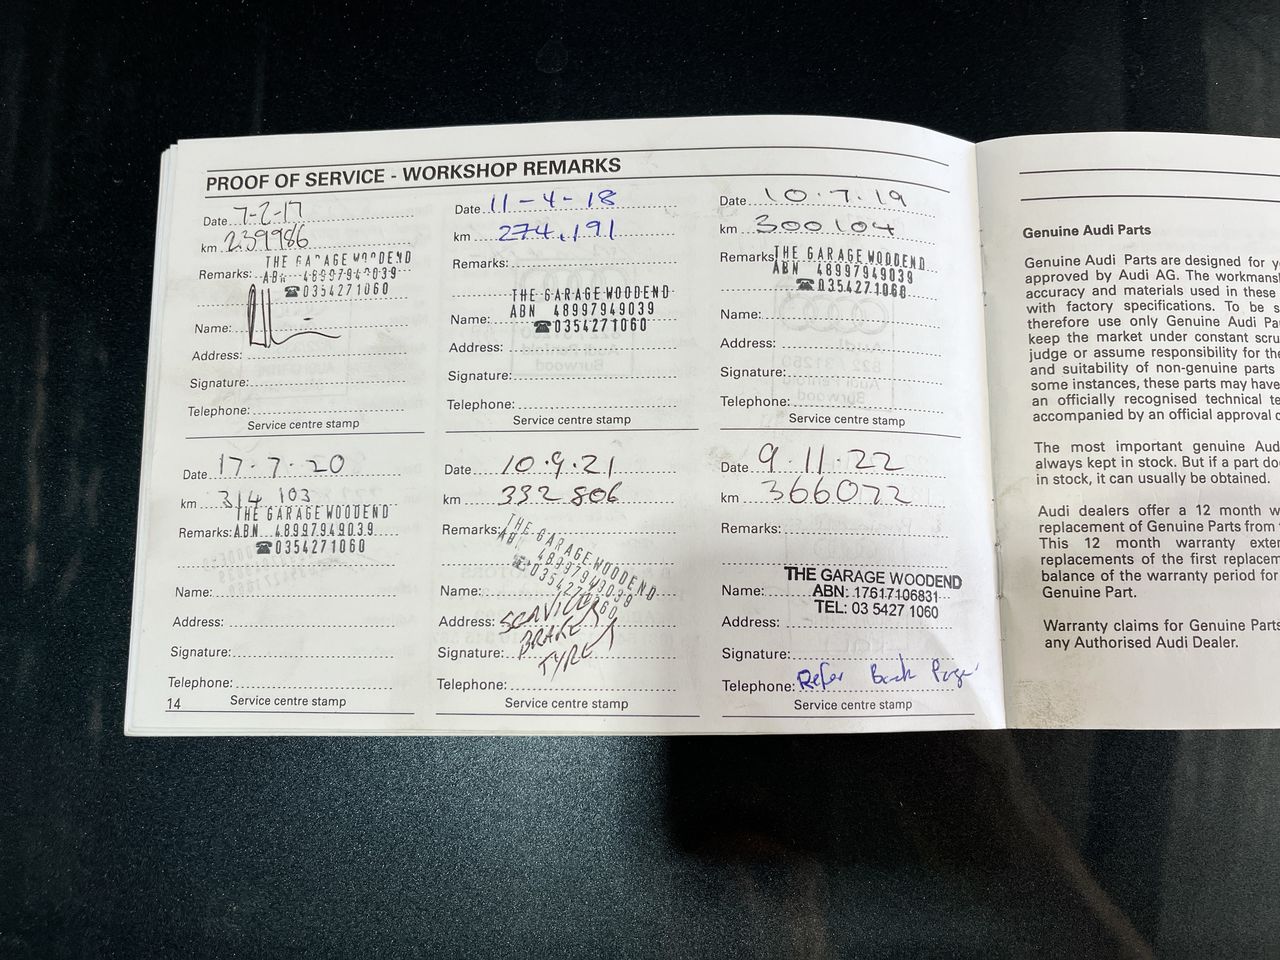 PROOF OF SERVICE - WORKSHOP REMARKS
Date 7-2-17
km 239986
Remarks: THE GARAGE WOODEND
ABN 48997949039
☎0354271060
Name:
Address:
Signature:
Telephone:
Service centre stamp
Date 11-4-18
km 274,191
Remarks:
THE GARAGE WOODEND
ABN 48997949039
Name: ☎0354271060
Address:
Signature:
Telephone:
Service centre stamp
Date 10.7.19
km 300104
Remarks: THE GARAGE WOODEND
ABN 48997949039
☎0354271060
Name:
Address:
Signature:
Telephone:
Service centre stamp
Date 17.7.20
km 314 103
THE GARAGE WOODEND
Remarks: ABN 48997949039
☎0354271060
Name:
Address:
Signature:
Telephone:
Service centre stamp
Date 10.9.21
km 332 806
Remarks: THE GARAGE WOODEND
ABN 48997949039
☎0354271060
Name:
Address: SERVICE
BRAKE
Signature: TYRE
Telephone:
Service centre stamp
Date 9.11.22
km 366072
Remarks:
THE GARAGE WOODEND
Name: ABN: 17617106831
TEL: 03 5427 1060
Address:
Signature:
Telephone: Refer Back Page
Service centre stamp
14
Genuine Audi Parts
Genuine Audi Parts are designed for
approved by Audi AG. The
accuracy and materials used in these
with factory specifications. To be
therefore use only Genuine Audi
keep the market under constant
judge or assume responsibility for the
and suitability of non-genuine parts
some instances, these parts may have
an officially recognised technical
accompanied by an official approval
The most important genuine
always kept in stock. But if a part
in stock, it can usually be obtained.
Audi dealers offer a 12 month
replacement of Genuine Parts from
This 12 month warranty
replacements of the first
balance of the warranty period for
Genuine Part.
Warranty claims for Genuine Parts
any Authorised Audi Dealer.